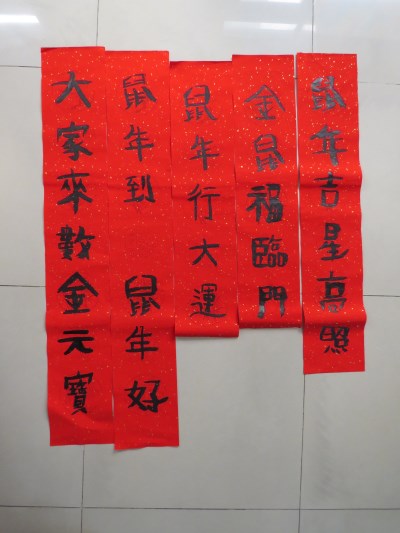 鼠年吉星高照
金鼠福臨門
鼠年行大運
鼠年到 鼠年好
大家來數金元寶